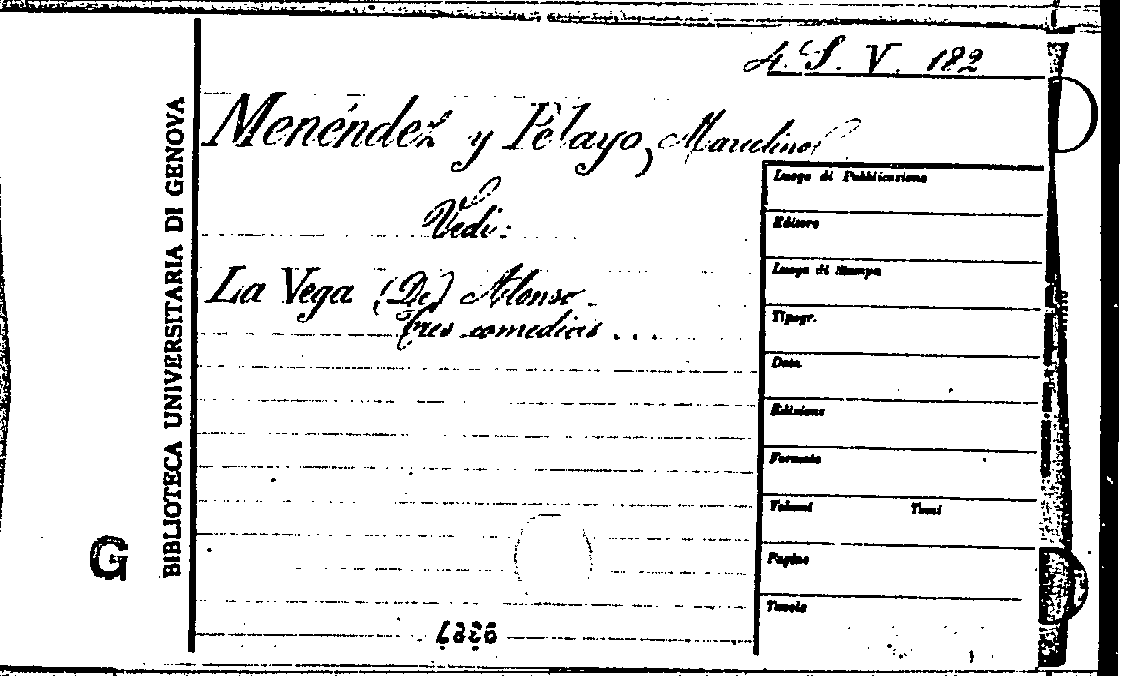 4. S. V. 182
Menéndez y Pelayo, Marcelino
Vedi:
La Vega (De) Alonso.
Tres comedias ...
Luogo di Pubblicazione
Editore
Luogo di Stampa
Tipogr.
Data
Edizione
Formato
Volumi Tomi
Pagine
Tavole
BIBLIOTECA UNIVERSITARIA DI GENOVA
G